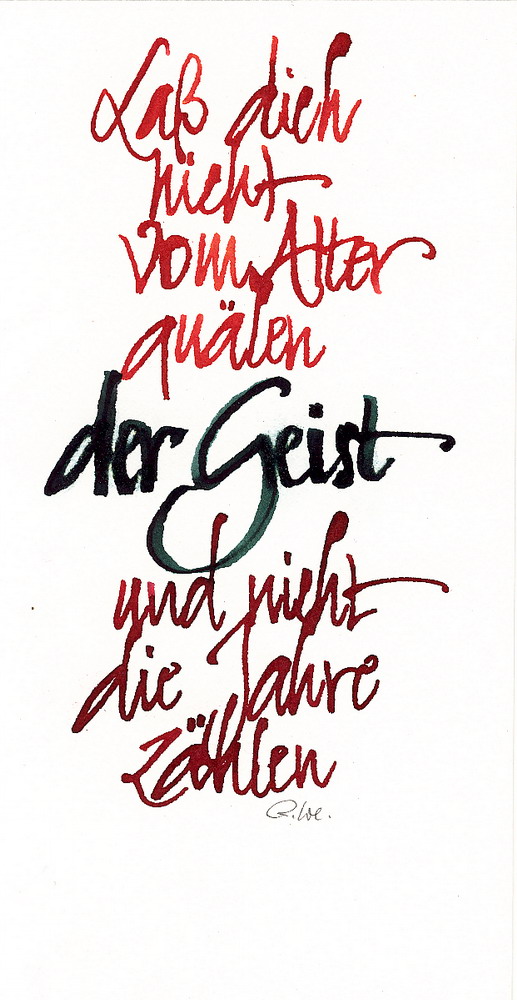 Laß dich
nicht
vom Alter
quälen
der Geist
und nicht
die Jahre
zählen